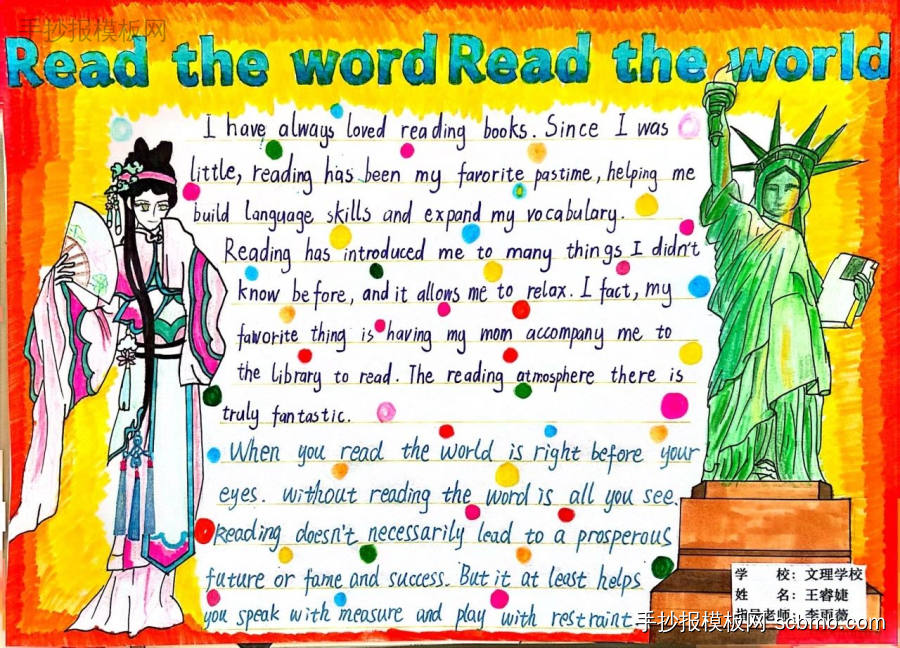 手抄报模板网
Read the word Read the world
I have always loved reading books. Since I was
little, reading has been my favorite pastime, helping me
build language skills and expand my vocabulary.
Reading has introduced me to many things I didn't
know before, and it allows me to relax. I fact, my
favorite thing is having my mom accompany me to
the library to read. The reading atmosphere there is
truly fantastic.
When you read the world is right before your
eyes. without reading the word is all you see.
Reading doesn't necessarily lead to a prosperous
future or fame and success. But it at least helps
you speak with measure and play with restraint.
学 校：文理学校
姓 名：王睿婕
指导老师：李雨薇
手抄报模板网 scbmb.com